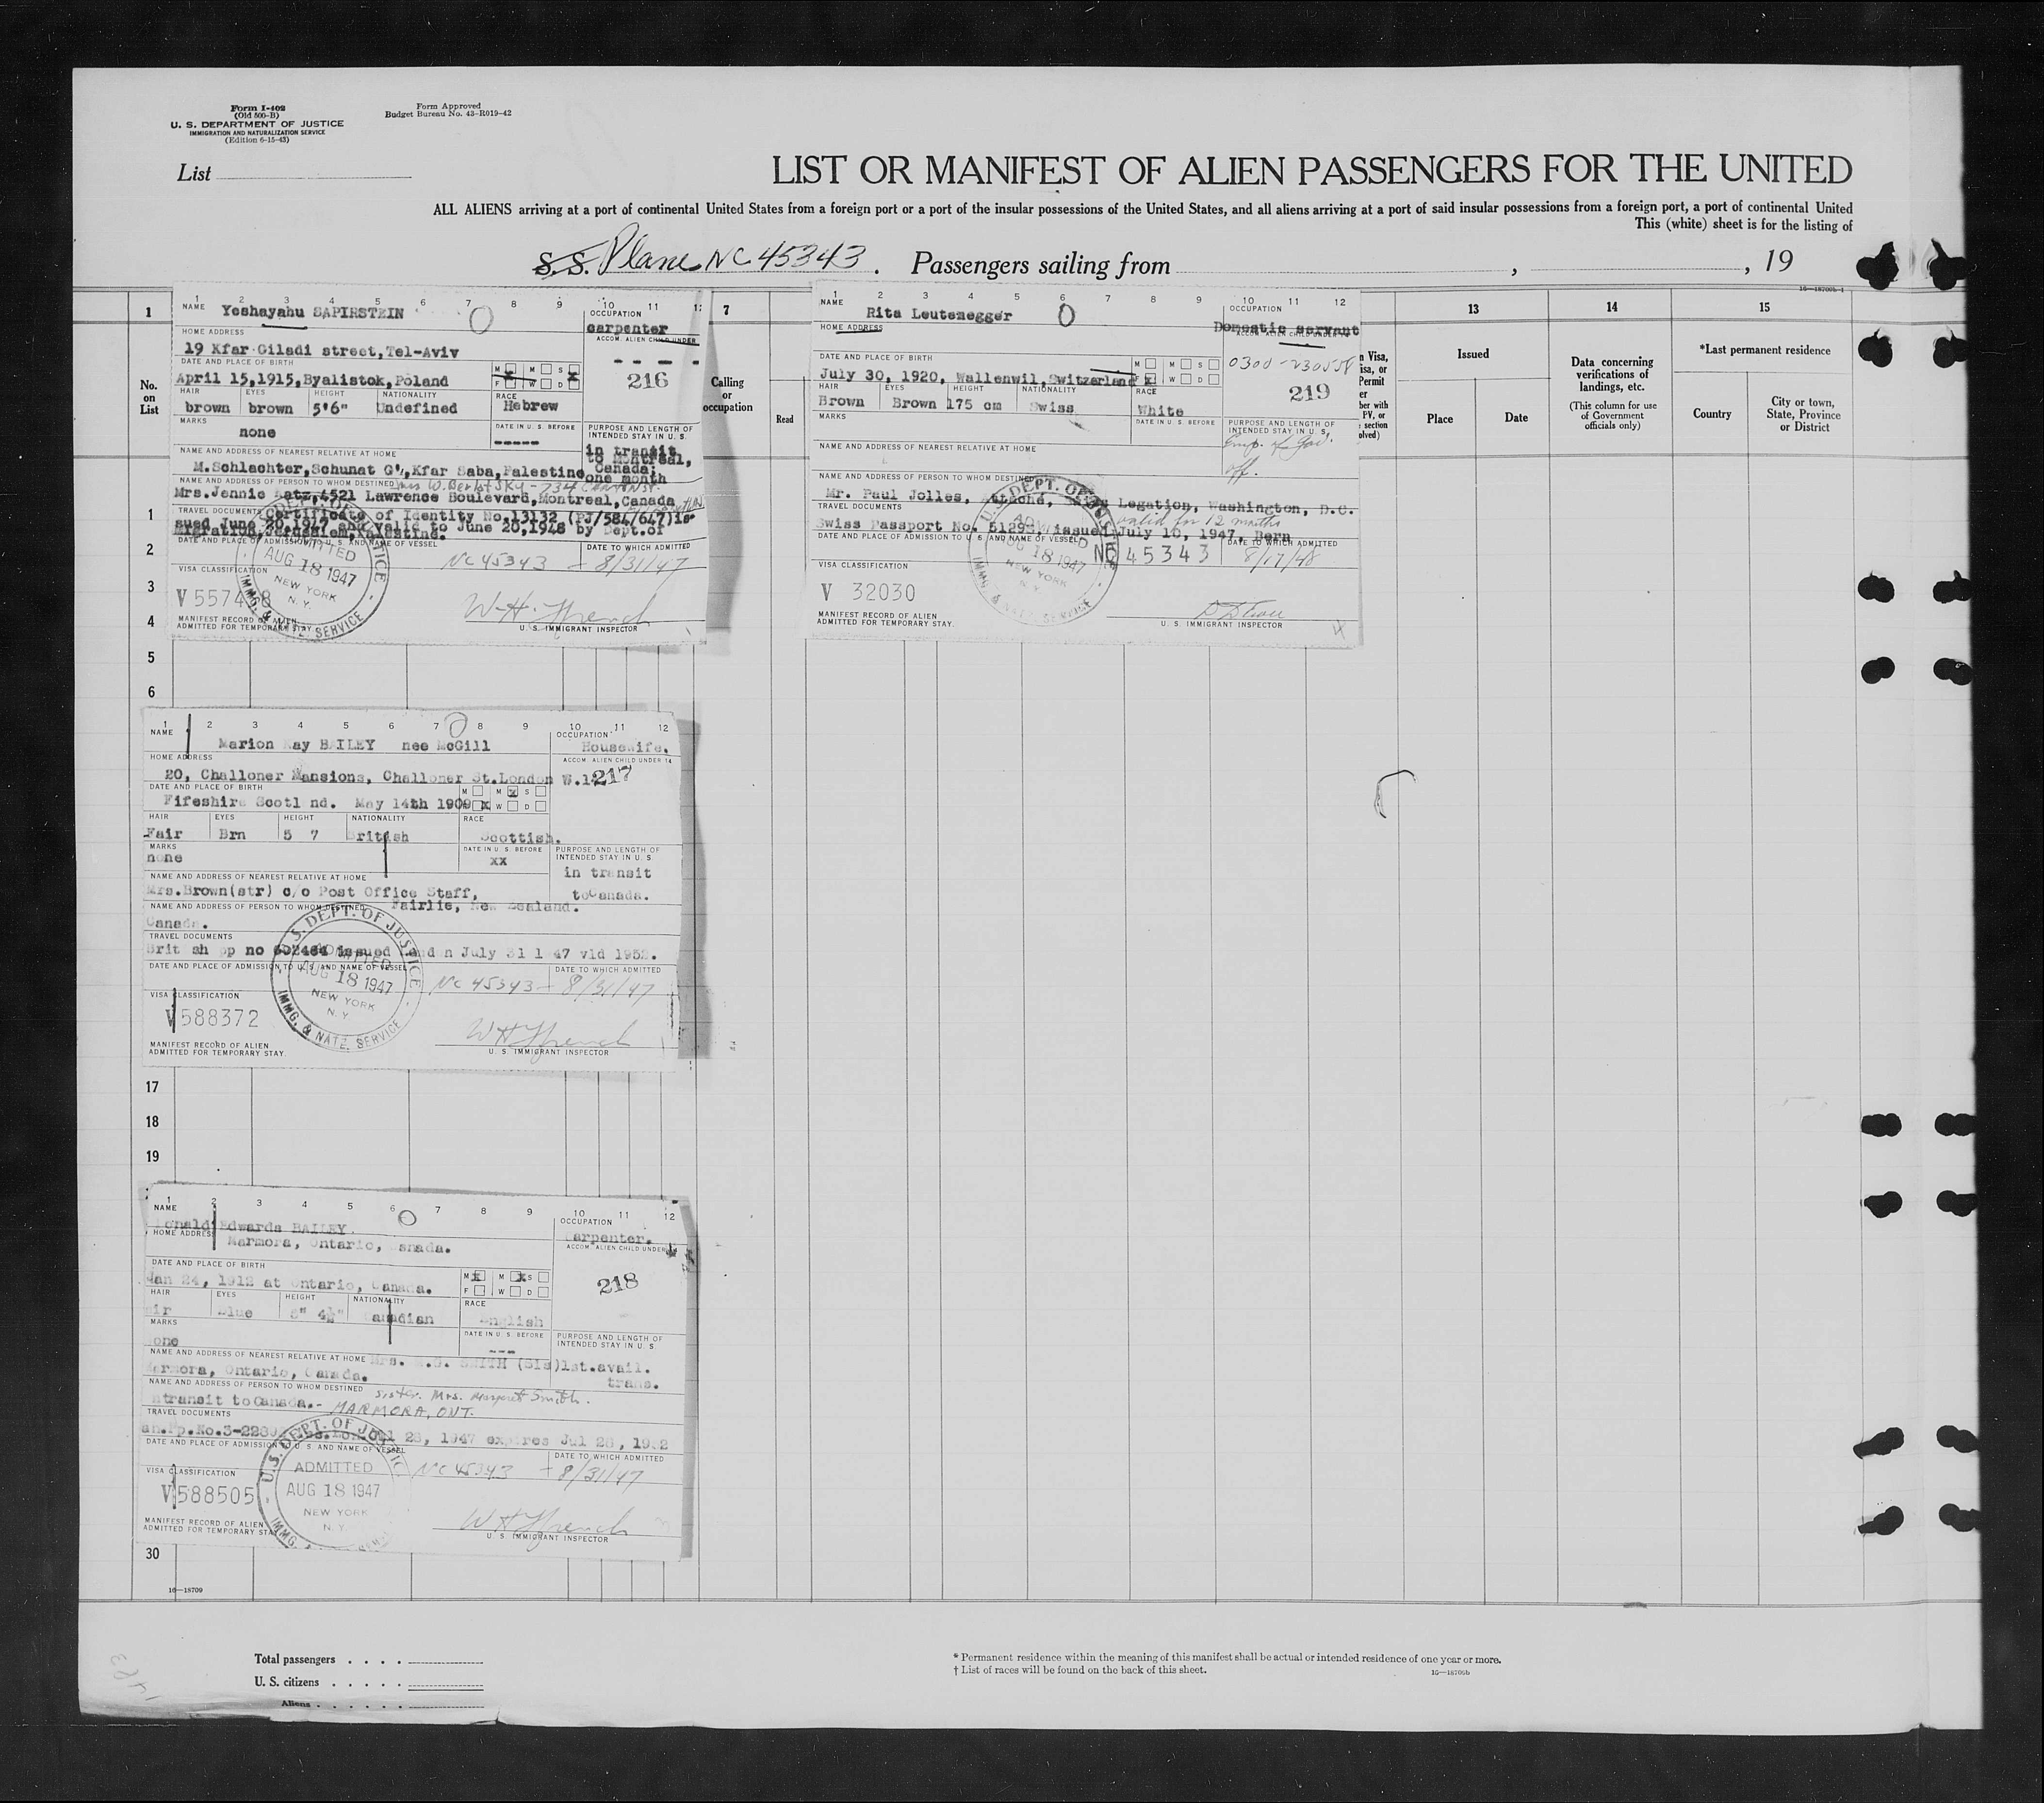 Form I-402
(Old 500-B)
U. S. DEPARTMENT OF JUSTICE
IMMIGRATION AND NATURALIZATION SERVICE
(Edition 6-15-43)
Form Approved
Budget Bureau No. 43-R019-42
List
LIST OR MANIFEST OF ALIEN PASSENGERS FOR THE UNITED
ALL ALIENS arriving at a port of continental United States from a foreign port or a port of the insular possessions of the United States, and all aliens arriving at a port of said insular possessions from a foreign port, a port of continental United
This (white) sheet is for the listing of
S.S. Plane NC 45343. Passengers sailing from , , 19
1 7 13 14 15
No. on List
Calling or occupation
Read
Issued
Place
Date
Data concerning verifications of landings, etc.
(This column for use of Government officials only)
*Last permanent residence
Country
City or town, State, Province or District
1 2 3 4 5 6 7 8 9 10 11
NAME Yeshayahu SAPIRSTEIN
OCCUPATION
carpenter
HOME ADDRESS
ACCOM. ALIEN CHILD UNDER
19 Kfar Giladi street, Tel-Aviv
DATE AND PLACE OF BIRTH
M M S
April 15,1915,Byalistok,Poland
F W D
216
HAIR EYES HEIGHT NATIONALITY RACE
brown brown 5'6" Undefined Hebrew
MARKS
none
DATE IN U. S. BEFORE
-----
PURPOSE AND LENGTH OF INTENDED STAY IN U. S.
in transit
to Montreal,
Canada;
one month
NAME AND ADDRESS OF NEAREST RELATIVE AT HOME
M.Schlachter,Schunat G',Kfar Saba,Palestine
NAME AND ADDRESS OF PERSON TO WHOM DESTINED
Mrs.Jennie Katz,4521 Lawrence Boulevard,Montreal,Canada
TRAVEL DOCUMENTS
Certificate of Identity No.13132 (PJ/584/647)is-
sued June 20,1947 and valid to June 20,1948 by Dept.of
Migration,Jerusalem,Palestine.
DATE AND PLACE OF ADMISSION TO U. S. AND NAME OF VESSEL
DATE TO WHICH ADMITTED
NC 45343 - 8/31/47
ADMITTED
AUG 18 1947
NEW YORK
N. Y.
IMMG. & NATZ. SERVICE
VISA CLASSIFICATION
W. H. French
MANIFEST RECORD OF ALIEN
ADMITTED FOR TEMPORARY STAY
U. S. IMMIGRANT INSPECTOR
1 2 3 4 5 6 7 8 9 10 11 12
NAME
Rita Leutenegger
OCCUPATION
Domestic servant
HOME ADDRESS
0300-230558
DATE AND PLACE OF BIRTH
M M S
July 30, 1920, Wallenwil,Switzerland
F x W D
219
HAIR EYES HEIGHT NATIONALITY RACE
Brown Brown 175 cm Swiss White
MARKS
DATE IN U. S. BEFORE
PURPOSE AND LENGTH OF INTENDED STAY IN U. S.
Emp. of Gov.
off.
NAME AND ADDRESS OF NEAREST RELATIVE AT HOME
NAME AND ADDRESS OF PERSON TO WHOM DESTINED
Mr. Paul Jolles, Attaché, Swiss Legation, Washington, D.C.
TRAVEL DOCUMENTS
valid for 12 months
issued July 10, 1947, Bern
DATE AND PLACE OF ADMISSION TO U. S. AND NAME OF VESSEL
DATE TO WHICH ADMITTED
NC 45343 8/17/48
VISA CLASSIFICATION
V 32030
MANIFEST RECORD OF ALIEN
ADMITTED FOR TEMPORARY STAY.
U. S. IMMIGRANT INSPECTOR
1
2
3
4
5
6
1 2 3 4 5 6 7 8 9 10 11 12
NAME
Marion Kay BAILEY nee McGill
OCCUPATION
Housewife.
HOME ADDRESS
ACCOM. ALIEN CHILD UNDER 14
20, Challoner Mansions, Challoner St.London W.14
217
DATE AND PLACE OF BIRTH
M M x S
Fifeshire Scotl nd. May 14th 1909
x W D
HAIR EYES HEIGHT NATIONALITY RACE
Fair Brn 5 7 British Scottish.
MARKS
none
DATE IN U. S. BEFORE
xx
PURPOSE AND LENGTH OF INTENDED STAY IN U. S.
in transit
toCanada.
NAME AND ADDRESS OF NEAREST RELATIVE AT HOME
Mrs.Brown(str) c/o Post Office Staff,
Fairlie, New Zealand.
NAME AND ADDRESS OF PERSON TO WHOM DESTINED
Canada.
TRAVEL DOCUMENTS
DATE AND PLACE OF ADMISSION TO U. S. AND NAME OF VESSEL
DATE TO WHICH ADMITTED
NC 45343 - 8/31/47
U.S. DEPT. OF JUSTICE
ADMITTED
AUG 18 1947
NEW YORK
N. Y.
IMMG. & NATZ. SERVICE
VISA CLASSIFICATION
V 588372
W H French
MANIFEST RECORD OF ALIEN
ADMITTED FOR TEMPORARY STAY
U. S. IMMIGRANT INSPECTOR
17
18
19
1 2 3 4 5 6 7 8 9 10 11 12
NAME
onald Edwards BAILEY.
OCCUPATION
Carpenter.
HOME ADDRESS
Marmora, Ontario, Canada.
ACCOM. ALIEN CHILD UNDER
DATE AND PLACE OF BIRTH
Jan 24, 1912 at Ontario, Canada.
M x M x S
F W D
218
HAIR EYES HEIGHT NATIONALITY RACE
Blue Canadian English
MARKS
none
DATE IN U. S. BEFORE
---
PURPOSE AND LENGTH OF INTENDED STAY IN U. S.
1st.avail.
trans.
NAME AND ADDRESS OF NEAREST RELATIVE AT HOME
Marmora, Ontario, Canada.
NAME AND ADDRESS OF PERSON TO WHOM DESTINED sister. Mrs. Margaret Smith.
ntransit toCanada.- MARMORA, ONT.
TRAVEL DOCUMENTS
DATE AND PLACE OF ADMISSION TO U. S. AND NAME OF VESSEL
DATE TO WHICH ADMITTED
NC 45343 - 8/31/47
U.S. DEPT. OF JUSTICE
ADMITTED
AUG 18 1947
NEW YORK
N. Y.
VISA CLASSIFICATION
V 588505
W H French
MANIFEST RECORD OF ALIEN
ADMITTED FOR TEMPORARY STAY
U. S. IMMIGRANT INSPECTOR
30
16—18709
Total passengers
U. S. citizens
Aliens
* Permanent residence within the meaning of this manifest shall be actual or intended residence of one year or more.
† List of races will be found on the back of this sheet.